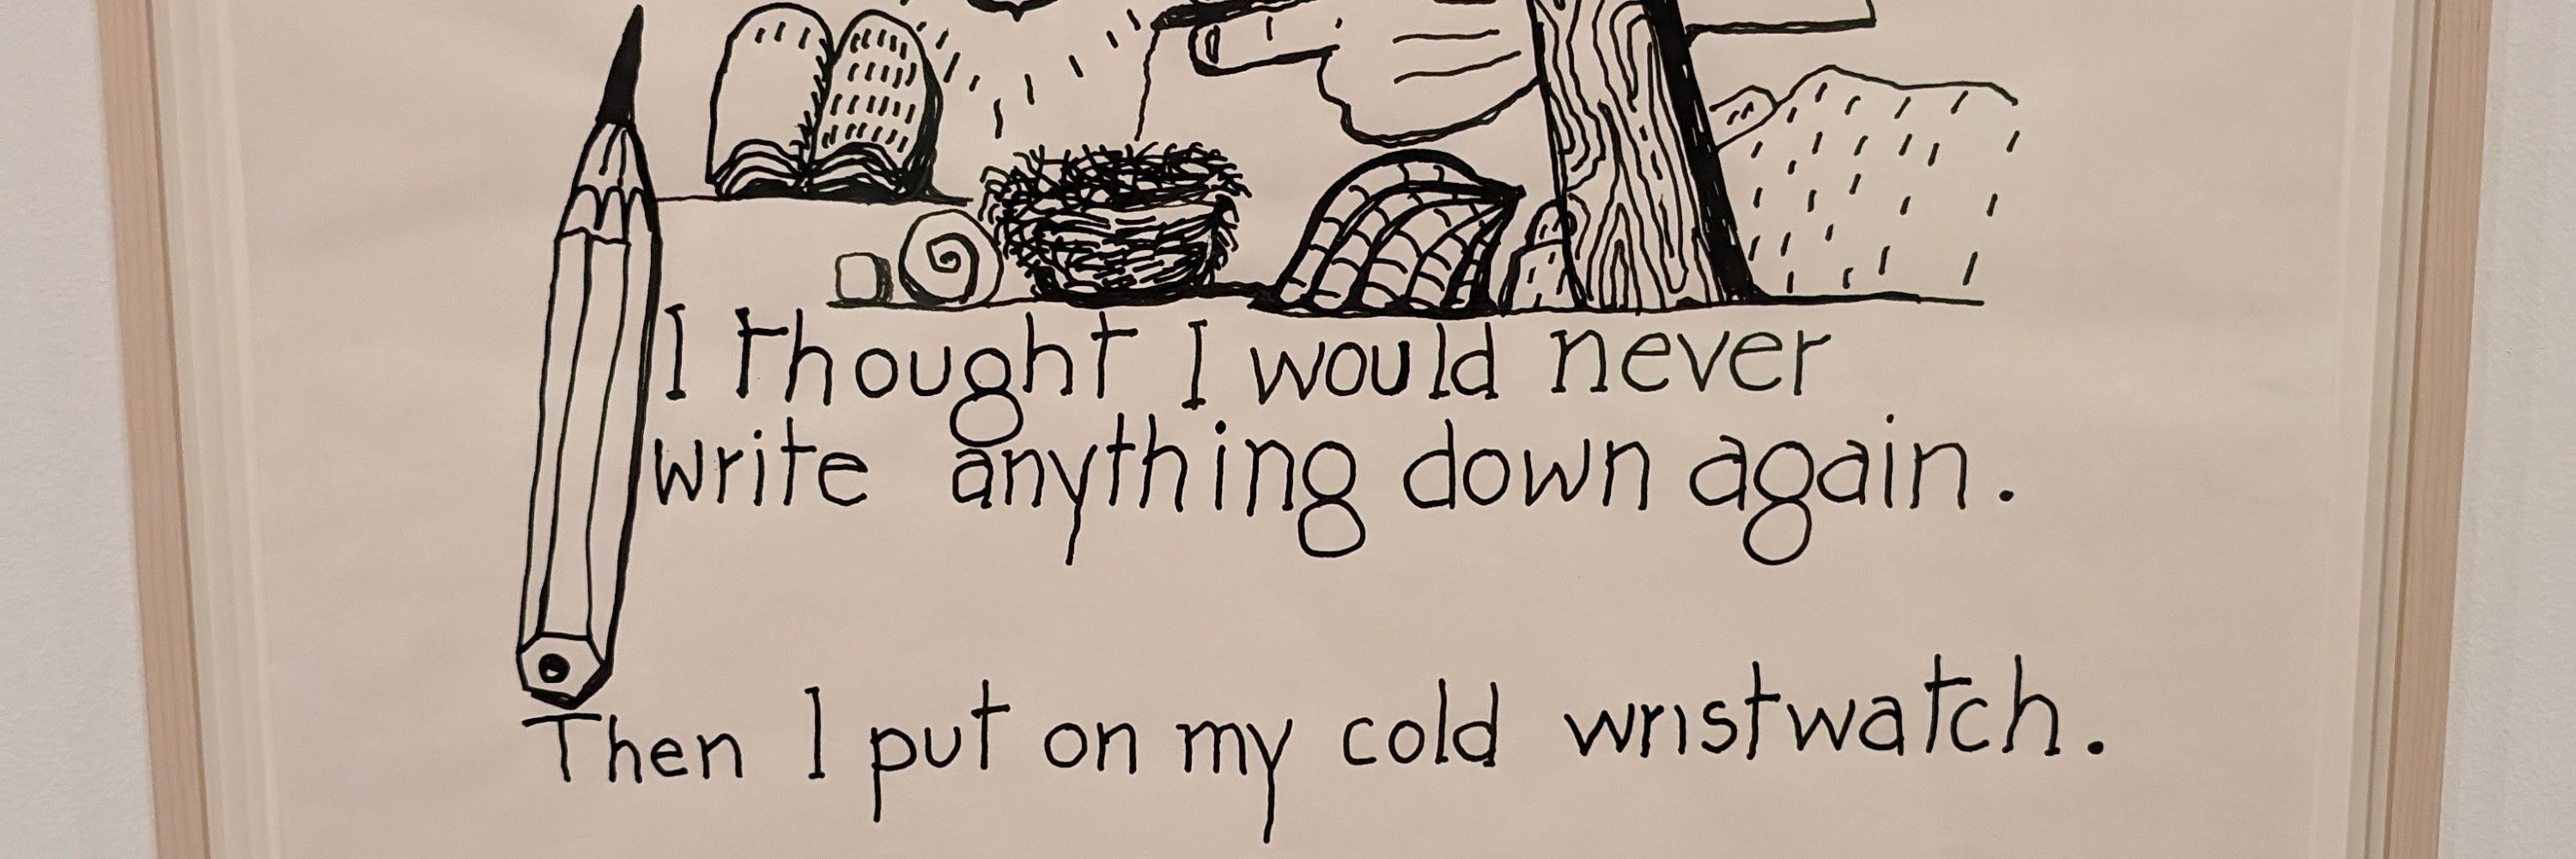 I thought I would never
write anything down again.
Then I put on my cold wristwatch.